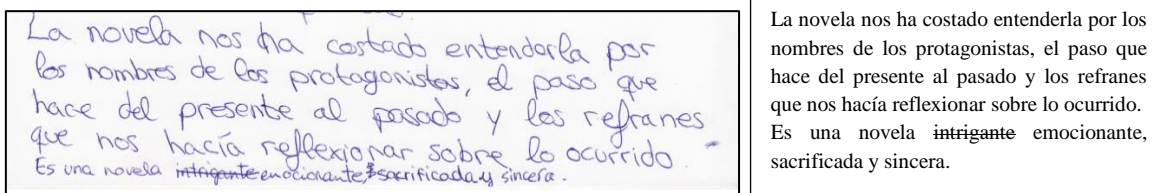 La novela nos ha costado entenderla por
los nombres de los protagonistas, el paso que
hace del presente al pasado y los refranes
que nos hacía reflexionar sobre lo ocurrido.
Es una novela intrigante emocionante, sacrificada y sincera.
La novela nos ha costado entenderla por los
nombres de los protagonistas, el paso que
hace del presente al pasado y los refranes
que nos hacía reflexionar sobre lo ocurrido.
Es una novela intrigante emocionante,
sacrificada y sincera.